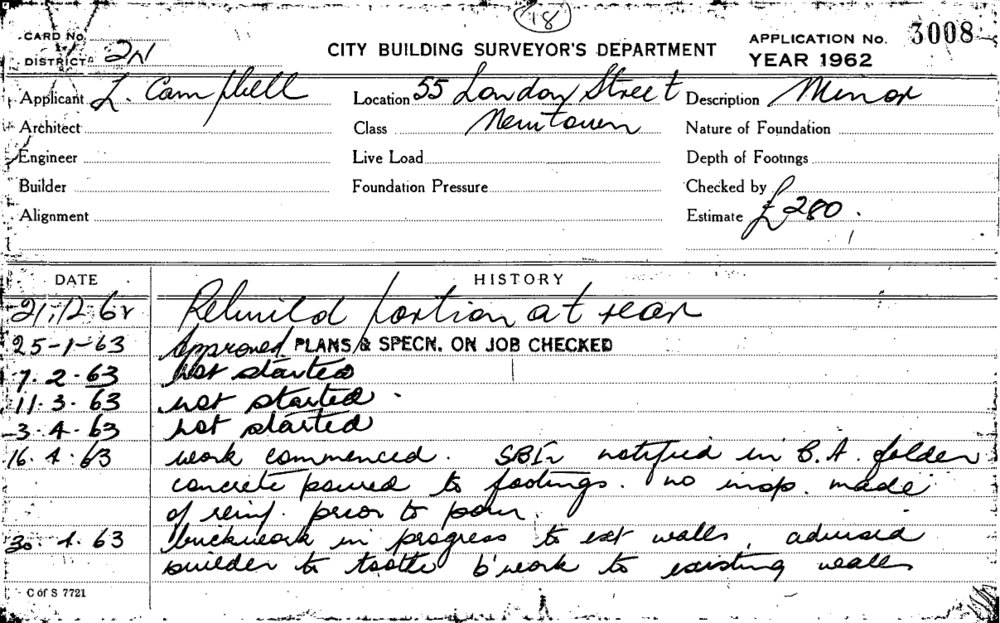 18
CARD No.
DISTRICT 2N
CITY BUILDING SURVEYOR'S DEPARTMENT
APPLICATION No. 3008
YEAR 1962
Applicant L. Campbell Location 55 London Street Description Minor
Architect Class Newtown Nature of Foundation
Engineer Live Load Depth of Footings
Builder Foundation Pressure Checked by
Alignment Estimate £280.
DATE HISTORY
21.12.62 Rebuild portion at rear
25-1-63 Approved PLANS & SPECN. ON JOB CHECKED
7.2.63 Not started
11.3.63 not started.
3.4.63 Not started
16.4.63 work commenced. SBI notified in B.A. folder
concrete poured to footings. no insp. made
of reinf. prior to pour.
30.4.63 brickwork in progress to ext walls, advised
builder to tooth b'work to existing walls
C of S 7721